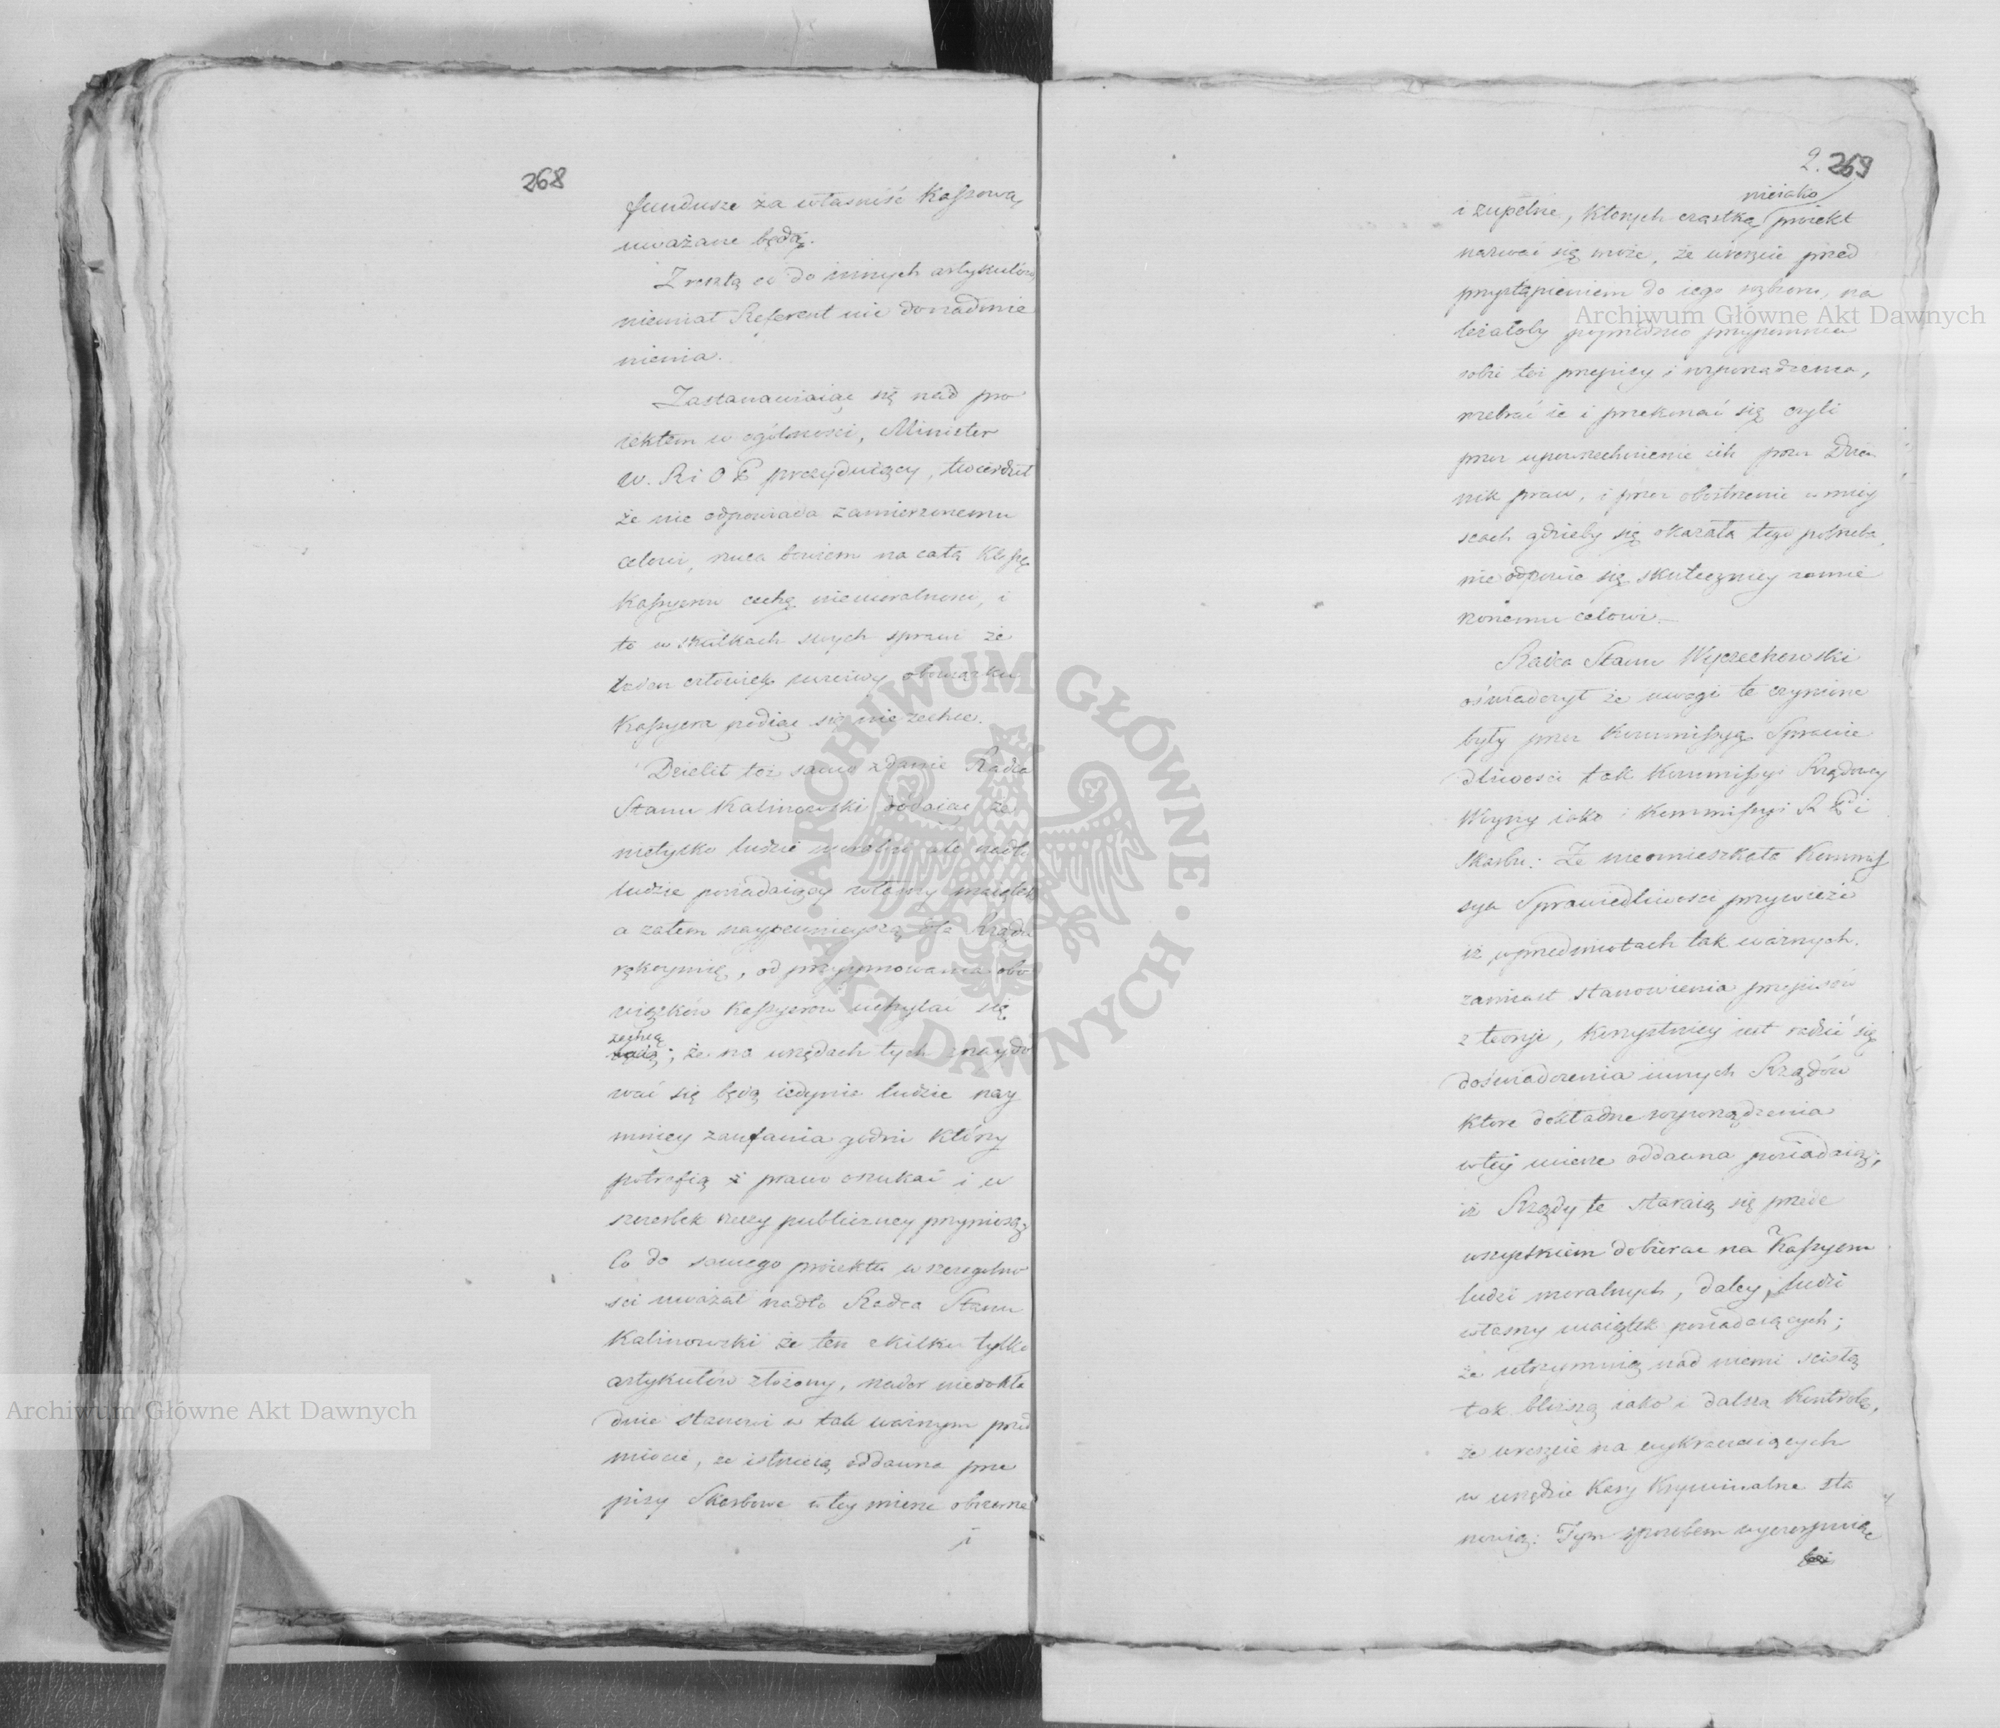 268
fundusze za własność Kassową
uważane będą.
Zresztą co do innych artykułów,
niemiał Referent nic do nadmie
nienia.
Zastanawiaiąc się nad pro
iektem w ogólności, Minister
W. R i O P prezyduiący, twierdził
że nie odpowiada zamierzonemu
celowi, rzuca bowiem na całą Klassę
Kassyerów cechę niemoralności, i
to w skutkach swych sprawi że
żaden człowiek uczciwy obowiązku
Kassyera podiąć się nie zechce.
Dzielił toż samo zdanie Radca
Stanu Kalinowski dodaiąc że
nietylko ludzie moralni ale nadto
ludzie posiadaiący własny maiątek
a zatem naypewnieyszą dla Rządu
rękoymię, od przyymowania obo
wiązków Kassyerów uchylać się
zechcą
; że na urzędach tych znaydo
wać się będą iedynie ludzie nay
mniey zaufania godni którzy
potrafią i prawo oszukać i w
szwank rzeczy publiczney przyniosą.
Co do samego proiektu w szczególno
ści uważał nadto Radca Stanu
Kalinowski że ten z kilku tylko
artykułów złożony, nader niedokła
dnie stanowi w tak ważnym przed
miocie, że istnieią oddawna prze
pisy Skarbowe w tey mierze obszerne
i
2. 269
nieiako
i zupełne, których cząstką proiekt
nazwać się może, że wreszcie przed
przystąpieniem do iego rozbioru, na
leżałoby poprzednio przypomnieć
sobie też przepisy i rozporządzenia,
zebrać ie i przekonać się czyli
przez upowszechnienie ich przez Dzien
nik praw, i przez obostrzenie w miey
scach gdzieby się okazała tego potrzeba,
nie odpowie się skuteczniey zamie
rzonemu celowi.
Radca Stanu Wyczechowski
oświadczył że uwagi te czynione
były przez Kommissyą Sprawie
dliwości tak Kommissyi Rządowey
Woyny iako i Kommissyi R P i
Skarbu: Że nieomieszkała Kommis
sya Sprawiedliwości przywieźć
iż w przedmiotach tak ważnych,
zamiast stanowienia przepisów
z teoryi, korzystniey iest radzić się
doświadczenia innych Rządów
które dokładne rozporządzenia
w tey mierze oddawna posiadaią;
iż Rządy te staraią się przede
wszystkiem dobierać na Kassyerów
ludzi moralnych, daley, ludzi
własny maiątek posiadaiących;
że utrzymuią nad niemi ścisłą
tak bliższą iako i dalszą Kontrolę,
że wreszcie na wykraczaiących
w urzędzie Kary Kryminalne sta
nowią: Tym sposobem wyczerpuiąc